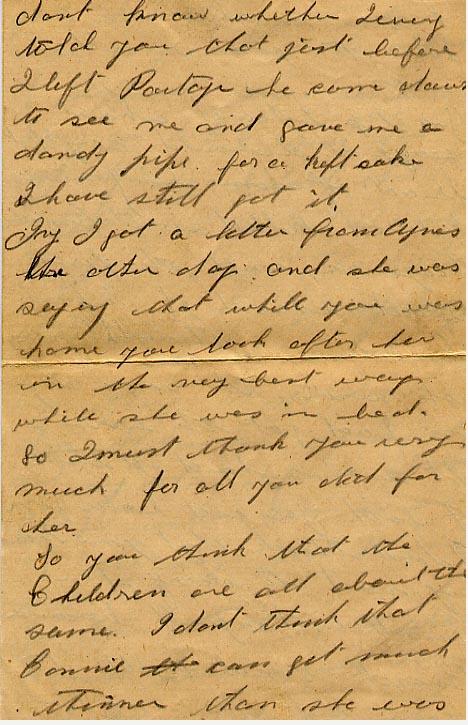 dont know whether I ever
told you that just before
I left Portage he come down
to see me and gave me a
dandy pipe for a keftsake
I have still got it
Ivy I got a letter from Agnes
the other day and she was
saying that whill you was
home you took after her
in the very best way
while she was in bed.
So I must thank you very
much for all you did for
her
So you think that the
Children are all about the
same. I dont think that
Connie can get much
thinner than she was